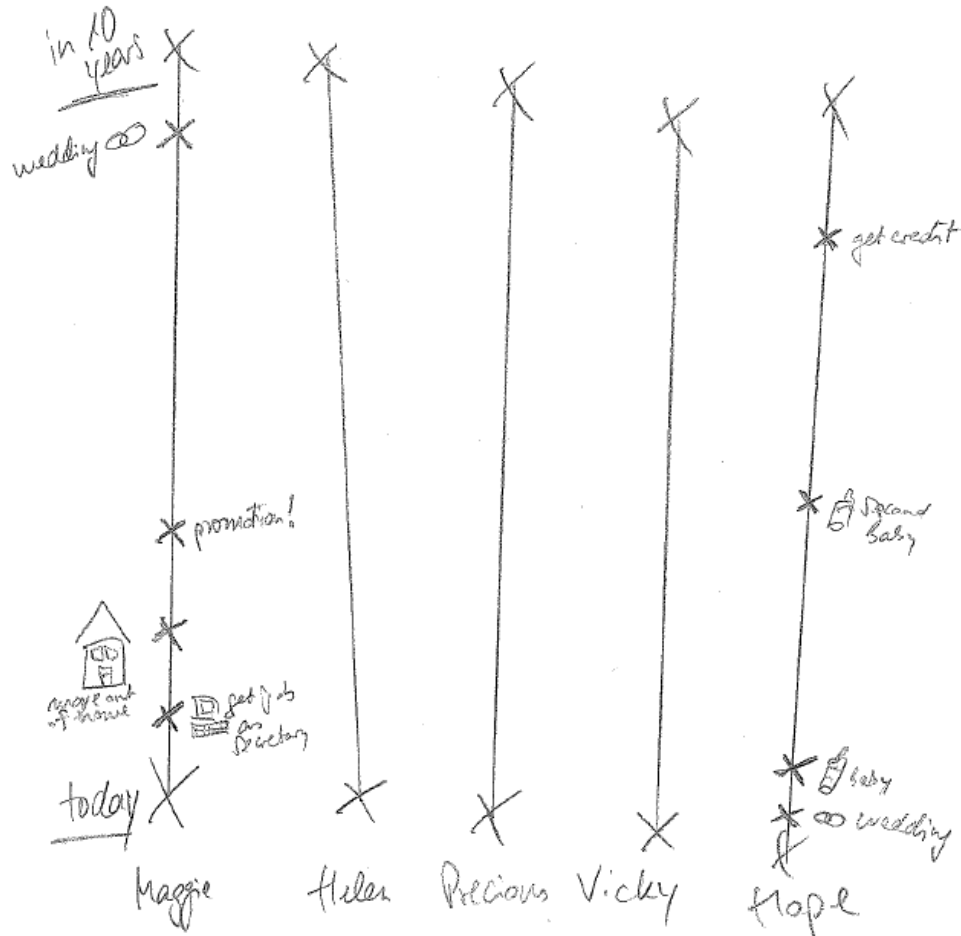 in 10
years
wedding
get credit
promotion!
second
baby
move out
of home
get job
as
secretary
baby
today
wedding
Maggie
Helen
Precious
Vicky
Hope